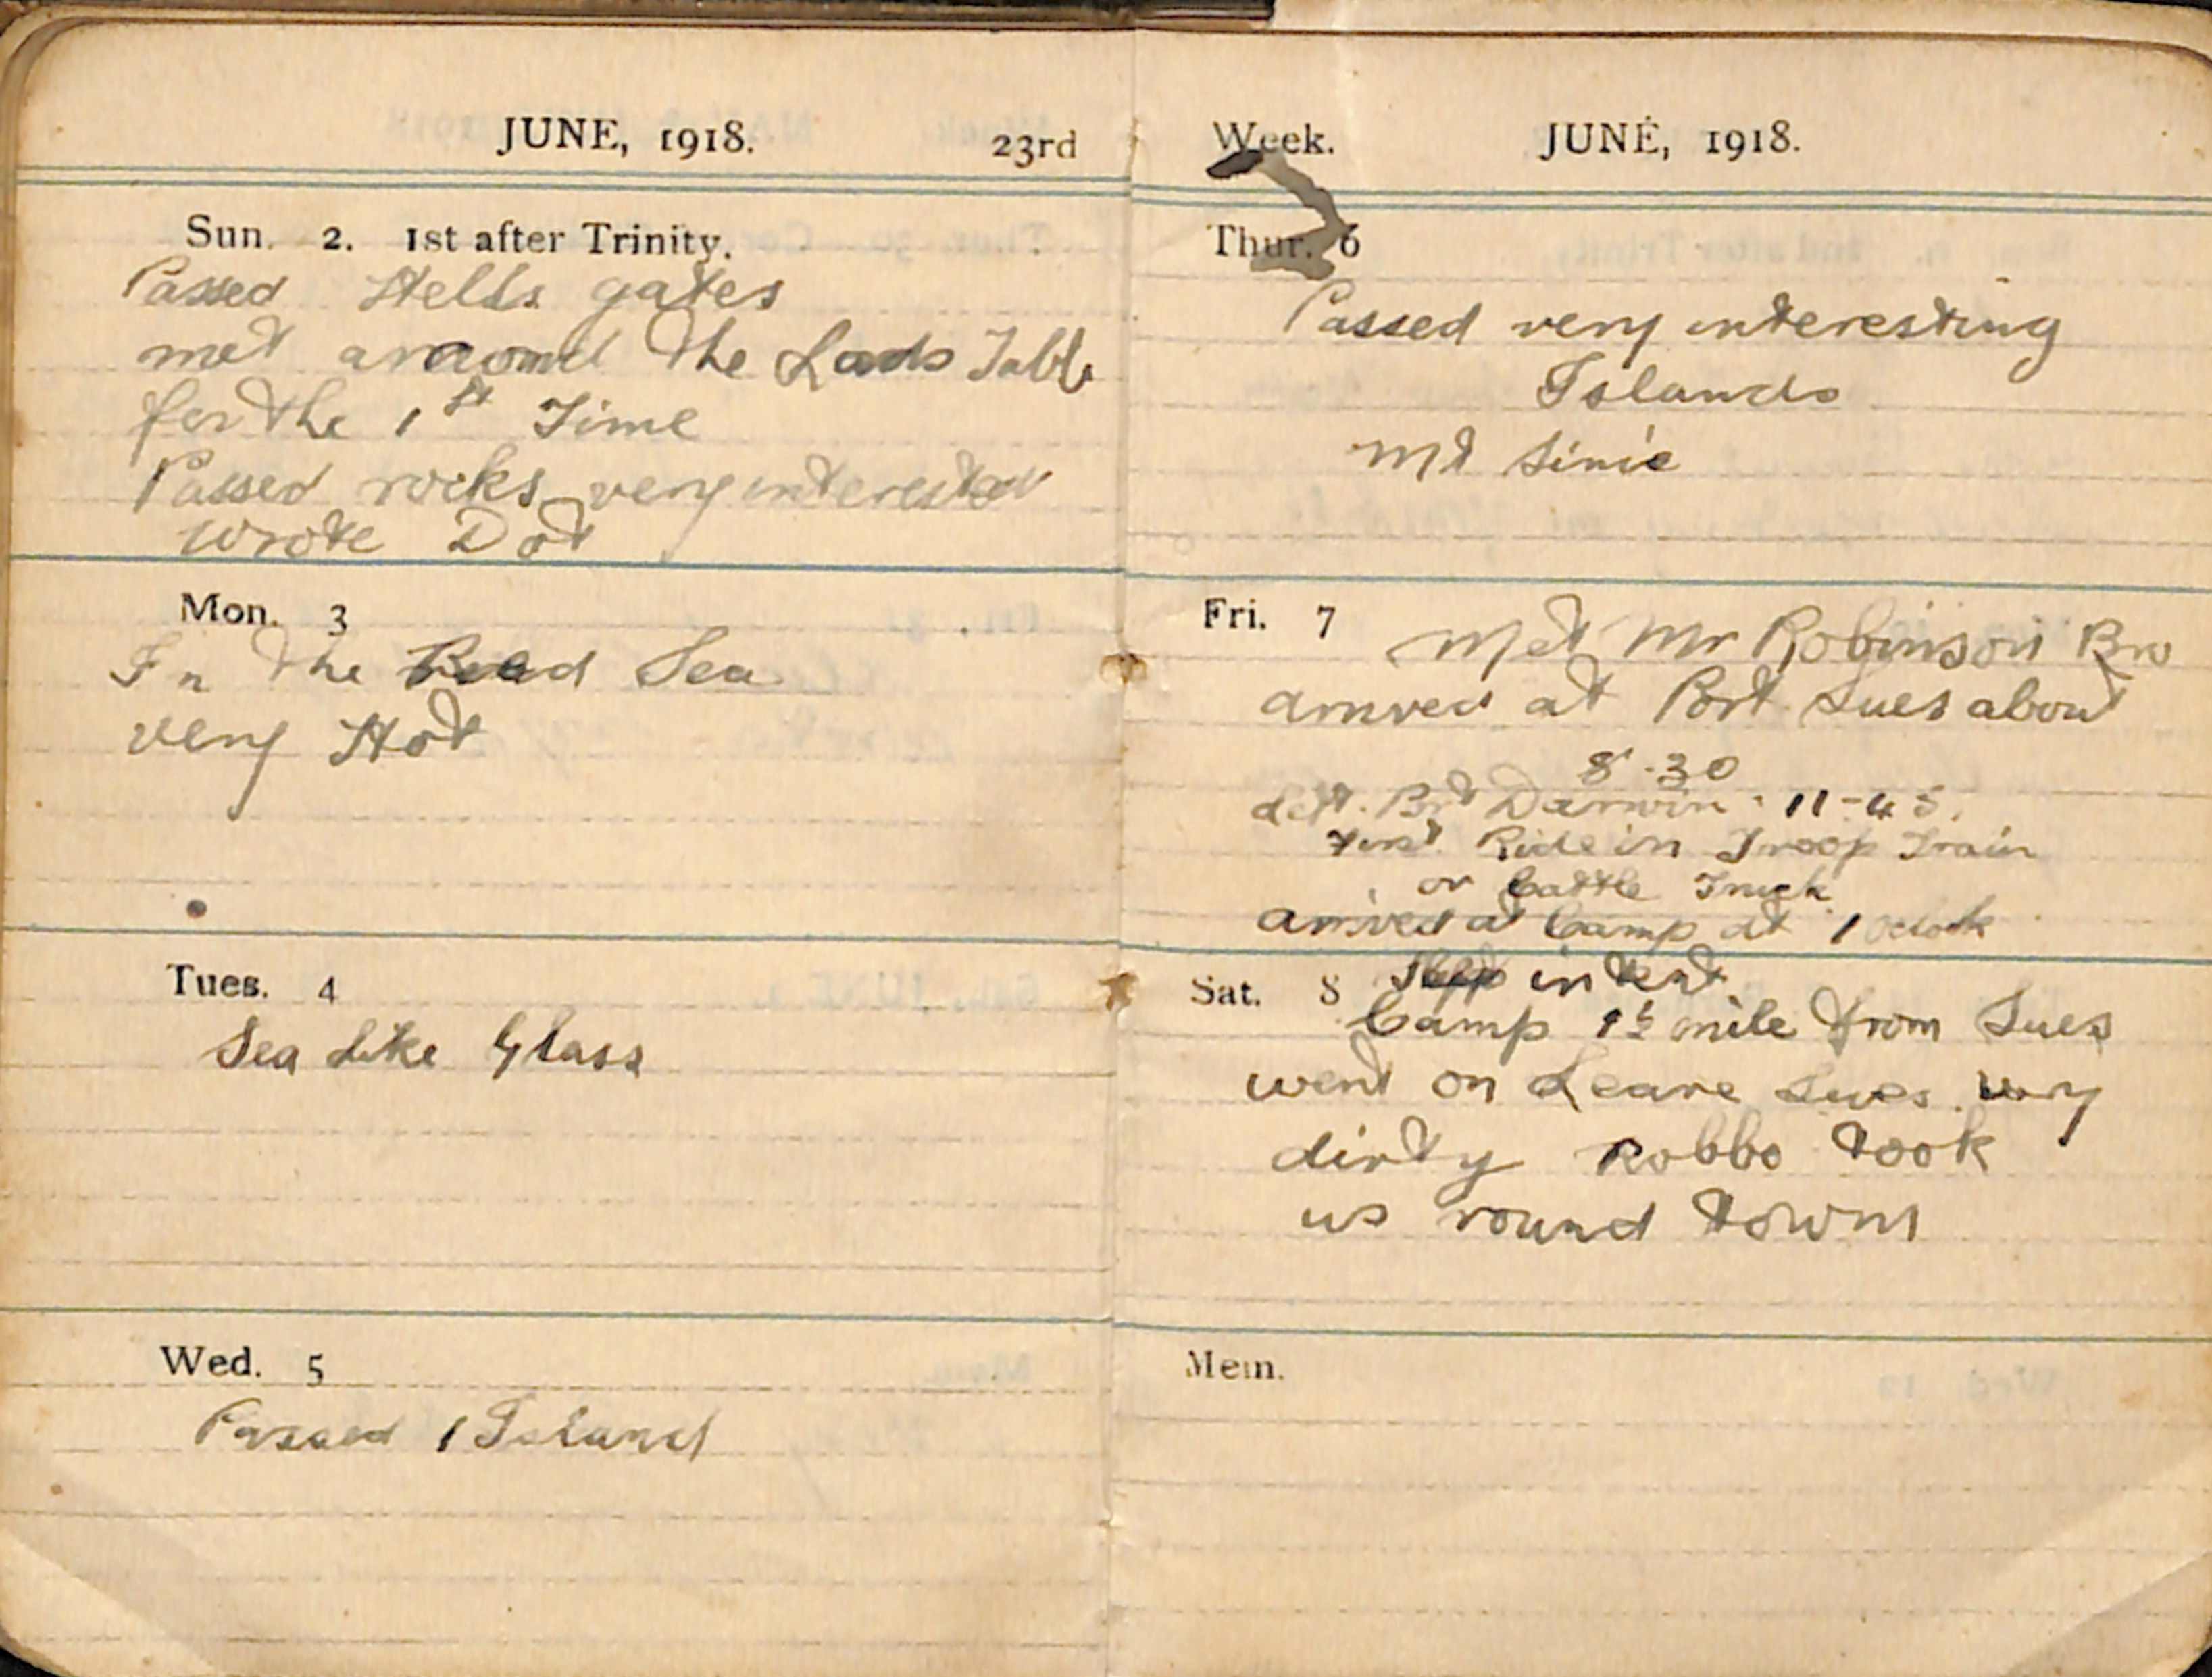 JUNE, 1918. 23rd
Sun. 2. 1st after Trinity.
Passed Hells gates
met around the Lords Table
for the 1st Time
Passed rocks very interested
wrote Dot
Mon. 3
In the Read Sea
very Hot
Tues. 4
Sea Like Glass
Wed. 5
Passed 1 Island
Week. JUNE, 1918.
Thur. 6
Passed very interesting
Islands
Mt Sinie
Fri. 7
Met Mr Robinson Bro
arrived at Port Sues about
8.30
left. Darwin. 11-45.
First Ride in Troop Train
or Cattle Truck
arrived at Camp at 1 Oclock
Sat. 8
in tent
Camp 1½ mile from Sues
went on Leave Sues very
dirty Robbo took
us round town
Mem.